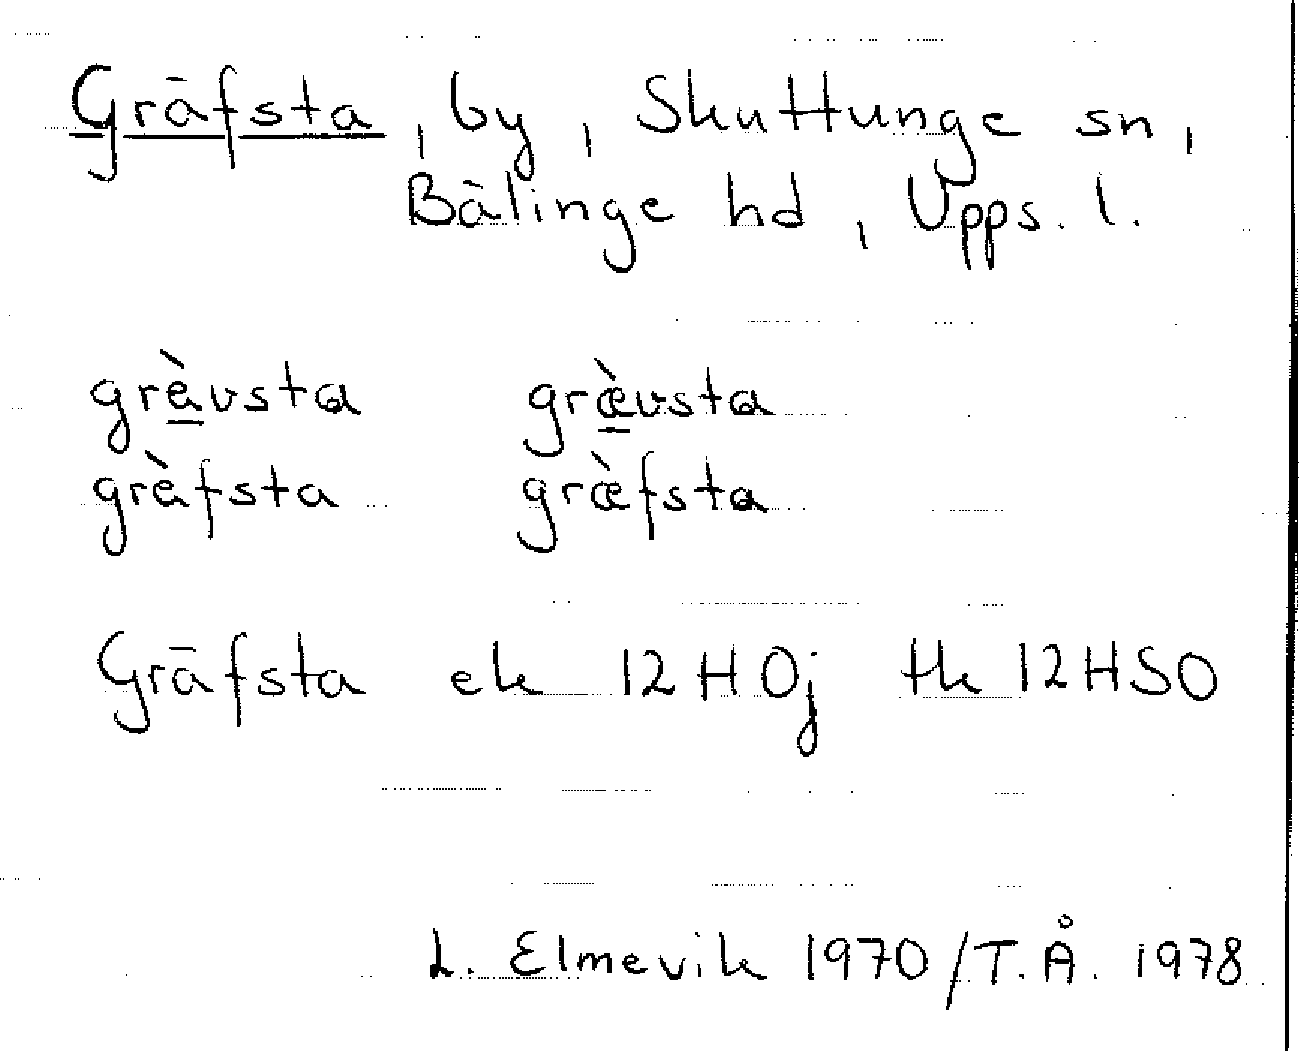 Gräfsta, by, Skuttunge sn,
Bälinge hd, Upps. l.
grè̱vsta græ̱̀vsta
grèfsta græ̀fsta
Gräfsta ek 12H0j tk 12HSO
L. Elmevik 1970/T.Å. 1978